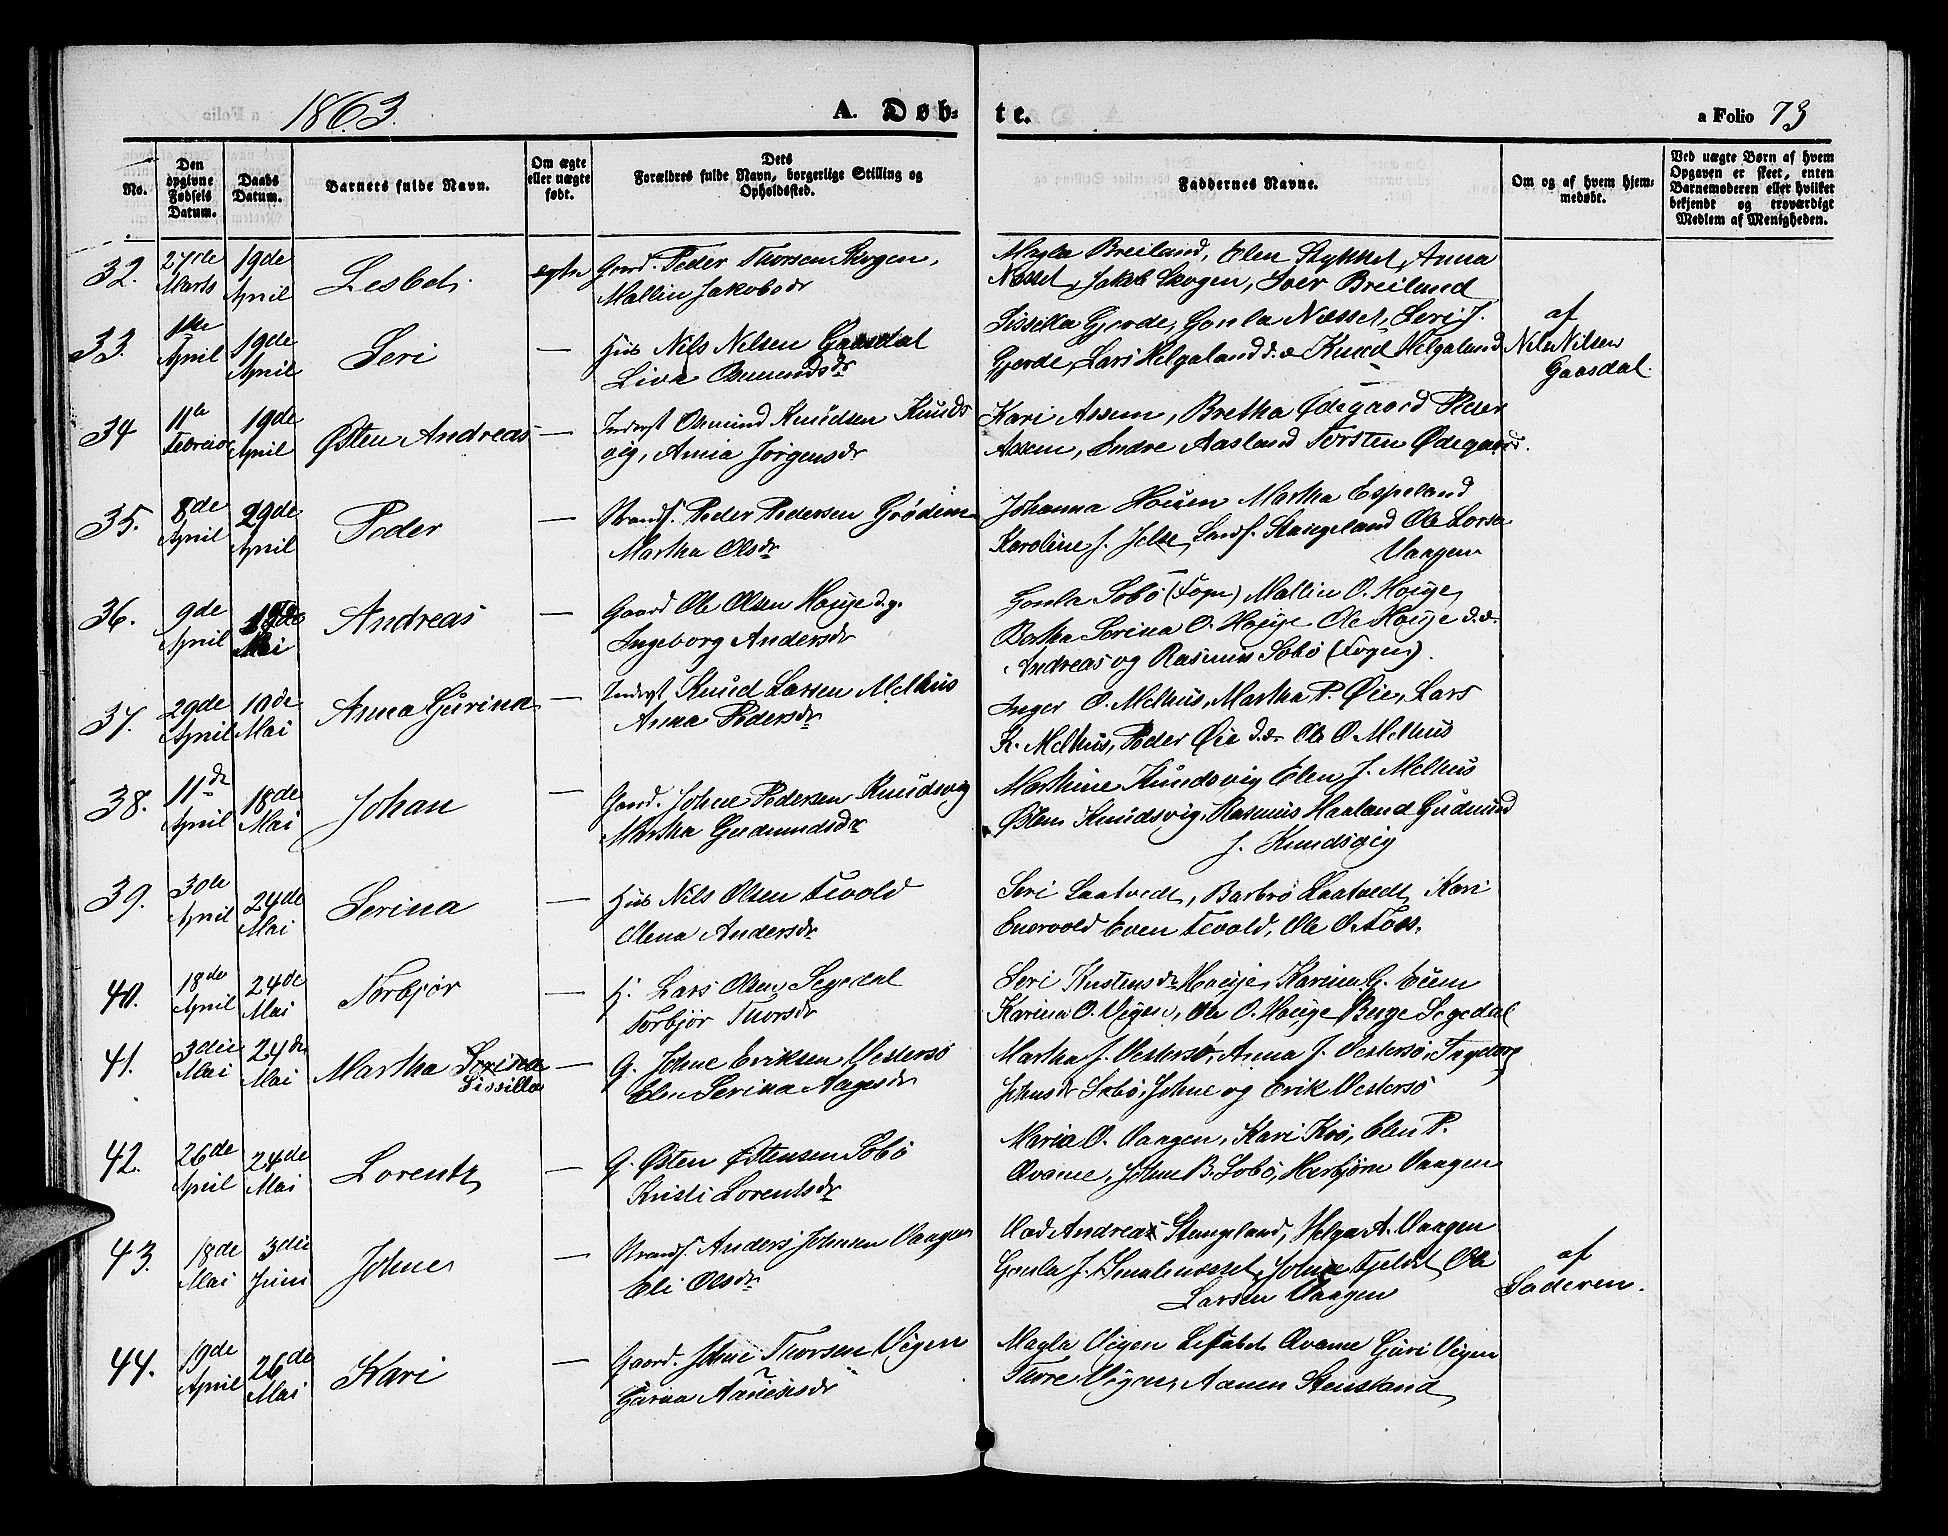 1863. A. Døb-
te. a Folio 73
No.
Den opgivne Fødsels Datum.
Daabs Datum.
Barnets fulde Navn.
Om ægte eller uægte født.
Dets Forældres fulde Navn, borgerlige Stilling og Opholdssted.
Faddernes Navne.
Om og af hvem hjemmedøbt.
Ved uægte Børn af hvem Opgaven er skeet, enten Barnemoderen eller hvilket bekjendt og troværdigt Medlem af Menigheden.
32. 27de Marts 19de April Lesbet. ægte Gaard. Peder Thorsen Skogen,
Mallin Jakobsdr
Magla Breiland, Elen Stykket, Anna
Nesset, Jakob Skogen, Iver Breiland
33. 1ste April 19de April Seri — Huus Nils Nilsen Gaasdal
Liva Osmundsdr
Sissilla Gjerde, Gonla Næsset, Seri J.
Gjerde, Lars Helgaland d. æ Knud Helgaland
af
Nils Nilsen
Gaasdal.
34 11te Februar 19de April Østen Andreas — Inderst Osmund Knudsen Knuds
vig, Anna Jørgensdr
Kari Assem, Bretha Ødegaard Peder
Assem, Endre Aasland Torsten Ødegaard.
35. 8de April 29de April Peder — Strands. Peder Pedersen Grødem
Martha Olsdr
Johanna Housen Martha Espeland
Karoline J. Jelse, Stangeland Ole Lorsa
Vaagen
36. 9de April Mai Andreas — Gaard Ole Olsen Houge d.y.
Ingeborg Andersdr
Gonla Sobø (Fogn) Mallin O. Houge,
Bertha Serina O. Houge Ole Houge d.æ.
Andreas og Rasmus Sobø (Fogn).
37. 29de April 19de Mai Anna Gurina — Inderst Knud Larsen Melhus
Anna Pedersdr
Inger O. Melhus, Martha P. Øie, Lars
K. Melhus, Peder Øie d.æ. Ole O Melhus
38. 11de April 18de Mai Johan — Gaard. Johne Pedersen Knudsvig
Martha Gudmundsdr
Marthine Knudsvig Elen J. Melhus
Østen Knudsvig, Rasmus Haaland Gudmund
J. Knudsvig
39. 30de April 24de Mai Serina — Huus Nils Olsen Tvold
Olena Andersdr
Seri Laatvedt, Barbrø Laatvedt, Kari
Enervold Even Tvold, Ole O. Foss.
40. 18de April 24de Mai Torbjør — H. Lars Olsen Segedal
Torbjør Thorsdr
Seri Knstensdr Houge, Karina G. Eiem
Karina O. Vigen, Ole O. Houge Børge Segedal
41. 3die Mai 24de Mai Martha Serina
Sissilla — G. Johne Eriksen Vestersø
Elen Serina Aagesdr
Martha J. Vestersø, Anna J. Vestersø, Ingeborg
Johnsdr Sobø, Johne og Erik Vestersø
42. 26de April 24de Mai Lorentz — G. Østen Østensen Sobø
Kristi Lorentsdr
Maria O. Vaagen, Kari Krø, Elen P.
Qvame, Johne B. Sobø, Herbjørn Vaagen
43. 18de Mai 3die Juni Johne — Strands. Anders Johnsen Vaagen
Eli Olsdr
Andreas Stangeland, Helga A. Vaagen
Gonla J. Smalenæsset, Johne Fjeldt, Ole
Larsen Vaagen
af
Faderen.
44. 19de April 26de Mai Kari — Gaard. Johne Thorsen Vigen
Gurina Aanensdr
Magla Vigen Lisabet Qvame Guri Vigen
Thore Vigen, Aanen Stensland